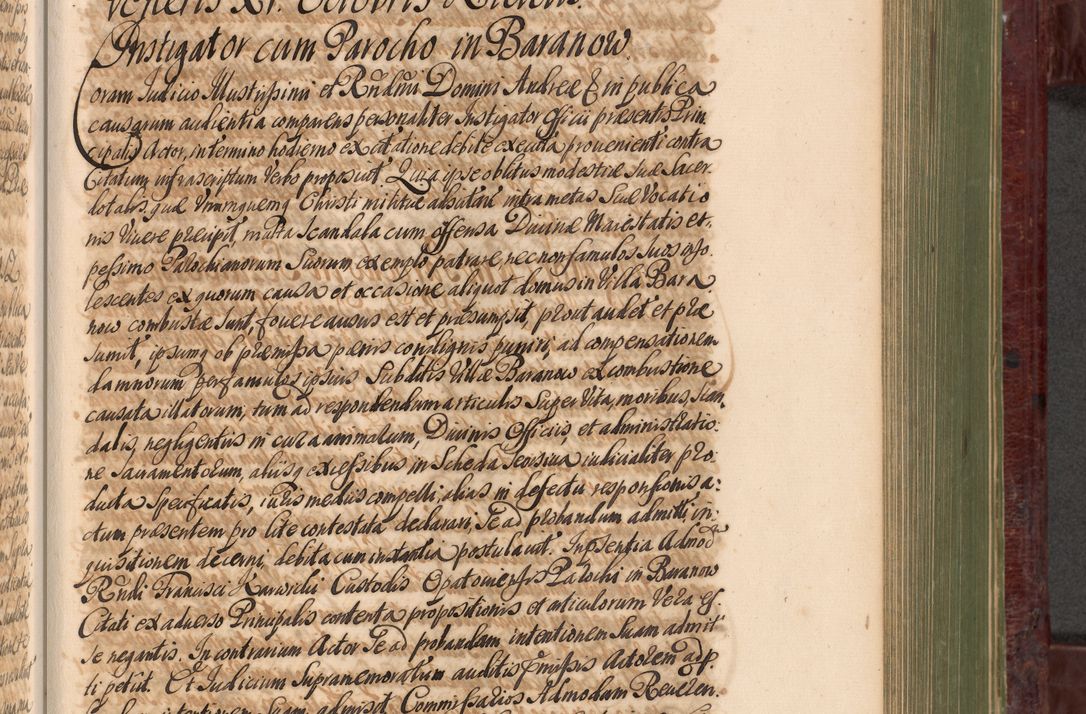 Veneris XI. Octobris
Instigator cum Parocho in Baranow.
Coram Judicio Illustrissimi et Rndmi Domini Andreæ & in publica
causarum audientia comparens personaliter Instigator Officii præsentis Prin
cipalis Actor, in termino hodierno ex citatione debite executa provenienti contra
Citatum infrascriptum Verbo proposuit. Quia ipse oblitus modestiæ suæ Sacer
dotalis, quæ Vnumquemq Christi militiæ adscriptum intra metas Suæ Vocatio
nis Vivere præcipit, multa Scandala cum offensa Divinæ Maiestatis et
pessimo Parochianorum Suorum exemplo patrare, nec non famulos Suos inso
lescentes ex quorum causa et occasione aliquot domus in Villa Bara
now combustæ sunt, fovere ausus est et præsumpsit, prout audet et præ
sumit, ipsumq ob præmissa pænis condignis puniri, ad compensationem
damnorum per famulos ipsius Subditis Villæ Baranow ex combustione
causata illatorum, tum ad respondendum articulis Super Vita, moribus, Scan
dalis, negligentiis in cura animarum, Divinis Officiis, et administratio
ne Sacramentorum, aliisq excessibus in Scheda Seorsiva iudicialiter pro
ducta Specificatis, iuris mediis compelli, alias in defectu responsionis a:
ctum præsentem pro lite contestata declarari, Se ad probandum admitti, in:
quisitionem decerni, debita cum instantia postulavit. In psentia Admod
Rndi Francisci Karwicki Custodis Opatoviensis Parochi in Baranow
Citati ex adverso Principalis contenta propositionis et articulorum Vera es
se negantis. In contrarium Actor Se ad probandam intentionem Suam admit
ti petiit. Et Judicium Supramemoratum auditis præmissis Actorem ad p
intentionem Suam admisit Commissarios Admodum Reveren.